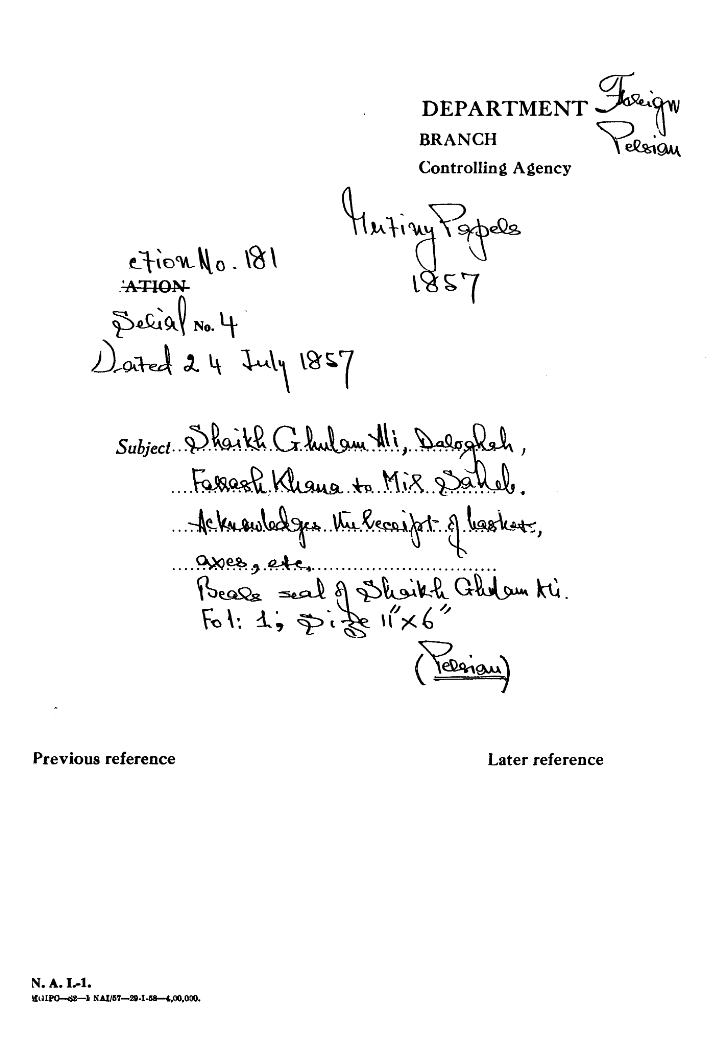 DEPARTMENT Foreign
BRANCH Persian
Controlling Agency
Mutiny Papers
1857
ction No. 181
ATION
Serial No. 4
Dated 24 July 1857
Subject Shaikh Ghulam Ali, Darogheh,
Farrash Khana to Mir Saheb.
Acknowledges the receipt of baskets,
axes, etc.
Bears seal of Shaikh Ghulam Ali.
Fol: 1; Size 11"x6"
(Persian)
Previous reference Later reference
N. A. I.-1.
MGIPC—68—1 NAI/57—29-1-58—4,00,000.